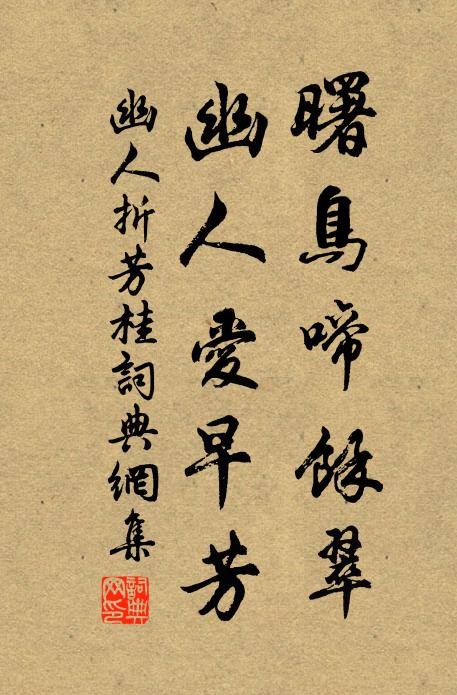 曙鳥啼餘翠
幽人愛早芳
幽人折芳桂詞典網集
詞典
网印